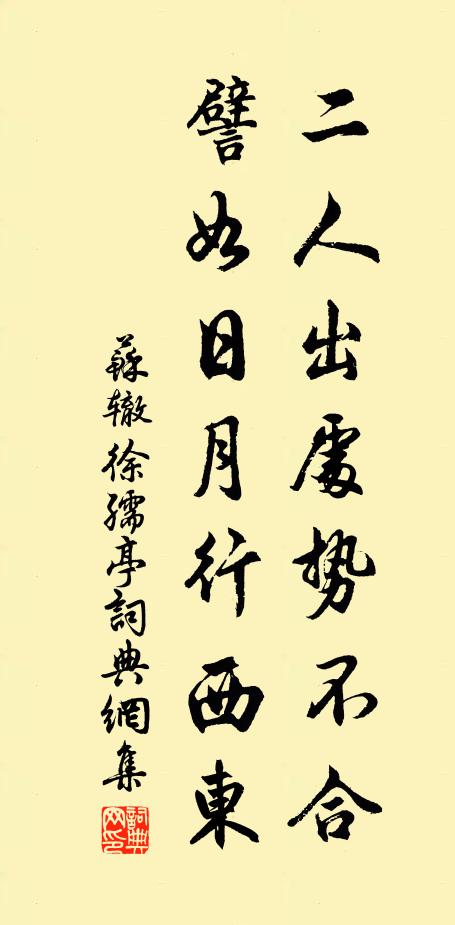 二人出處势不合
譬如日月行西東
蘇辙徐孺亭詞典網集
詞典網印